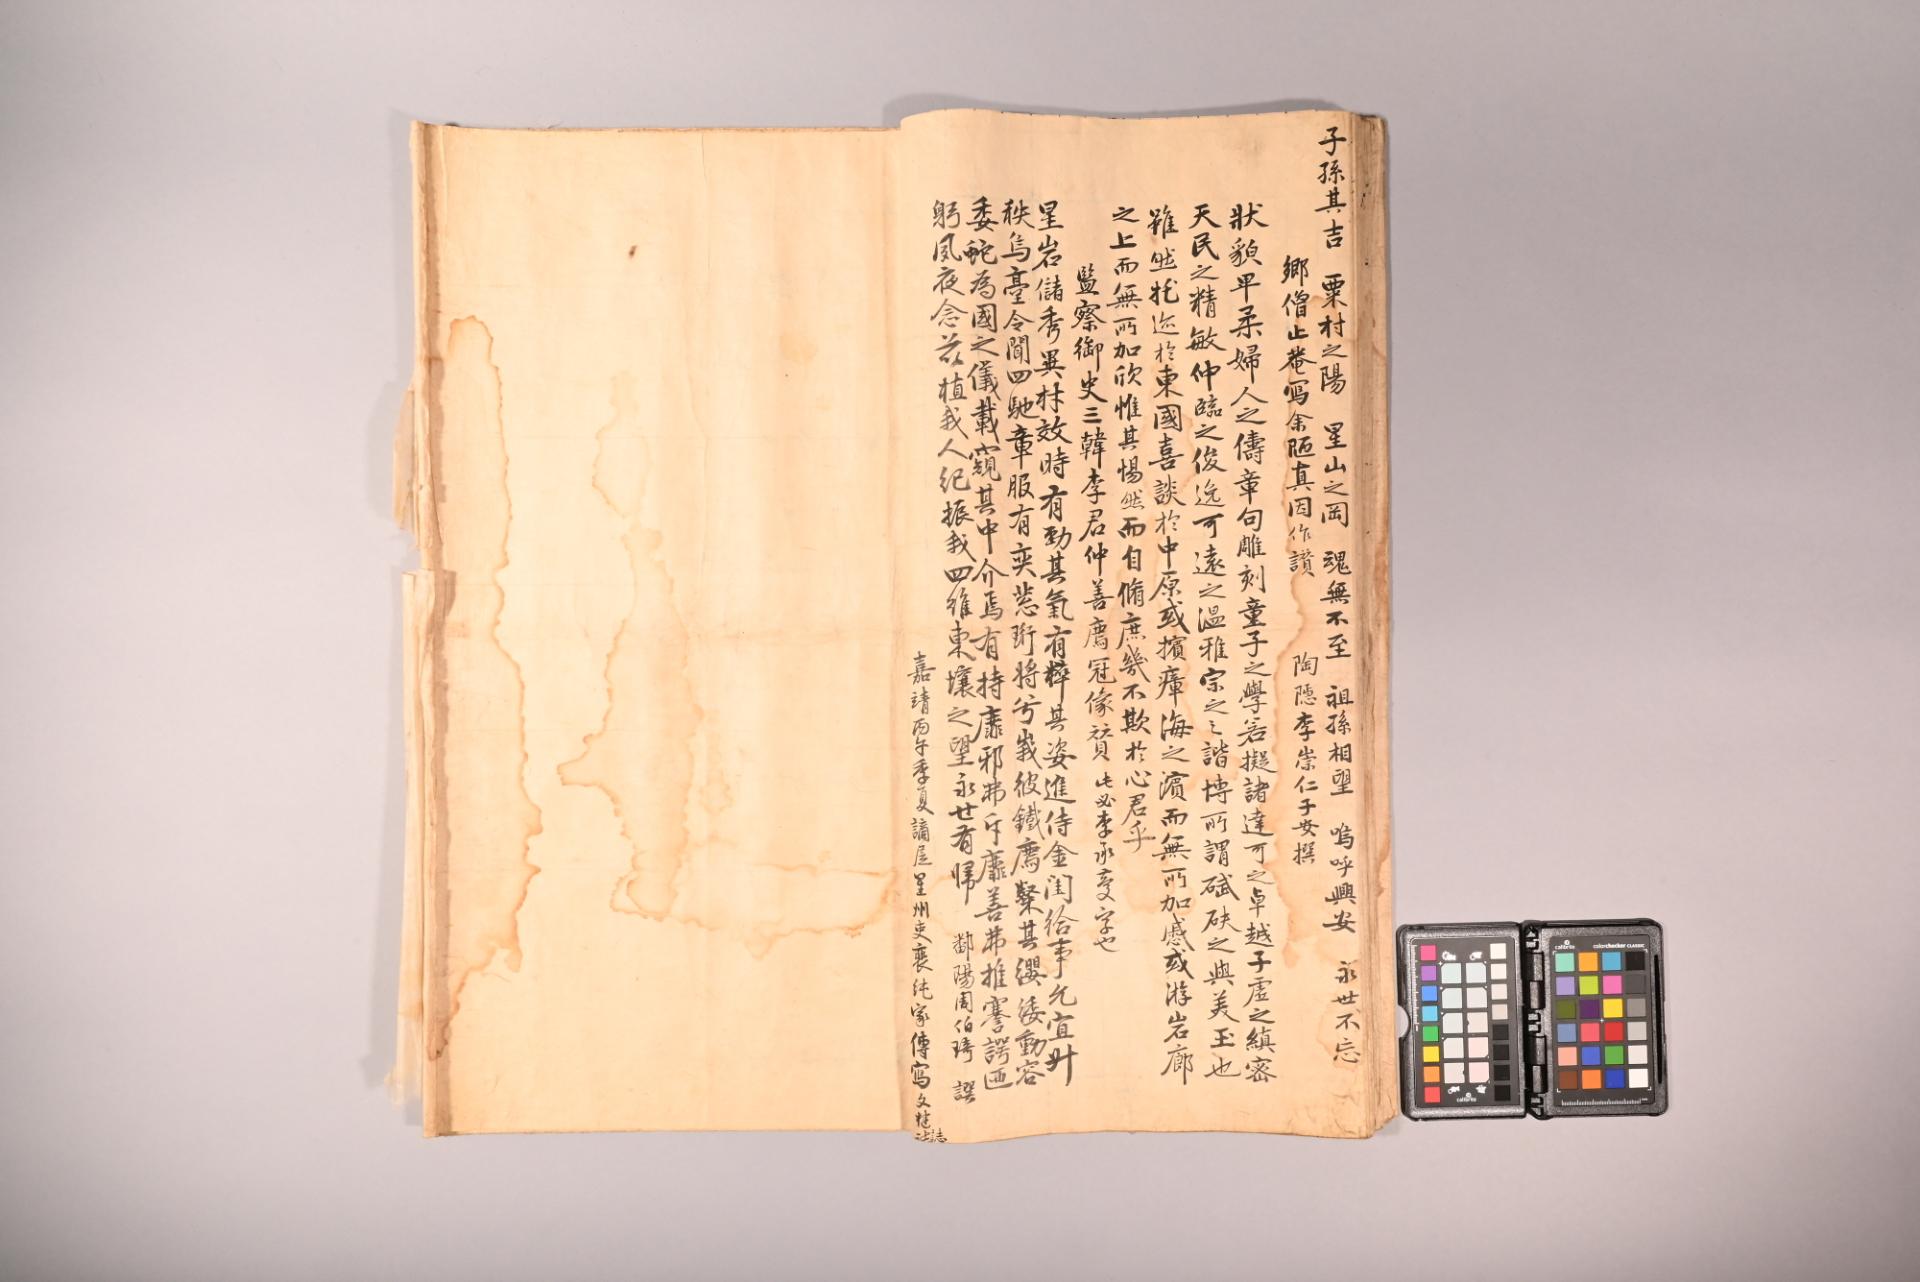 子孫其吉 粟村之陽 星山之岡 魂無不至 祖孫相望 嗚呼興安 永世不忘
鄉僧止菴寫余陋真因作讃 陶隱李崇仁子安撰
狀貌卑柔婦人之儔章句雕刻童子之學若擬諸達可之卓越子虛之縝密
天民之精敏仲臨之俊逸可遠之溫雅宗之之諧博所謂碔砆之與美玉也
雖然托迹於東國喜談於中原或擯瘴海之濱而無所加慼或游岩廊
之上而無所加欣惟其惕然而自脩庶幾不欺於心君乎
監察御史三韓李君仲善廌冠像賛 此必李承慶字也
星岩儲秀異材效時有勁其氣有粹其姿進侍金閨給事允宜升
秩烏臺令聞四馳章服有奕葱珩將兮峩彼鐵廌槃其纓緌動容
委蛇為國之儀載窺其中介焉有持靡邪弗斥靡善弗推謇諤匪
躬夙夜念茲植我人紀振我四維東壤之望永世有歸 鄱陽周伯琦 譔
嘉靖丙午季夏謫居星州吏裵純家傳寫文楗 誌
calibrite
colorchecker CLASSIC
calibrite